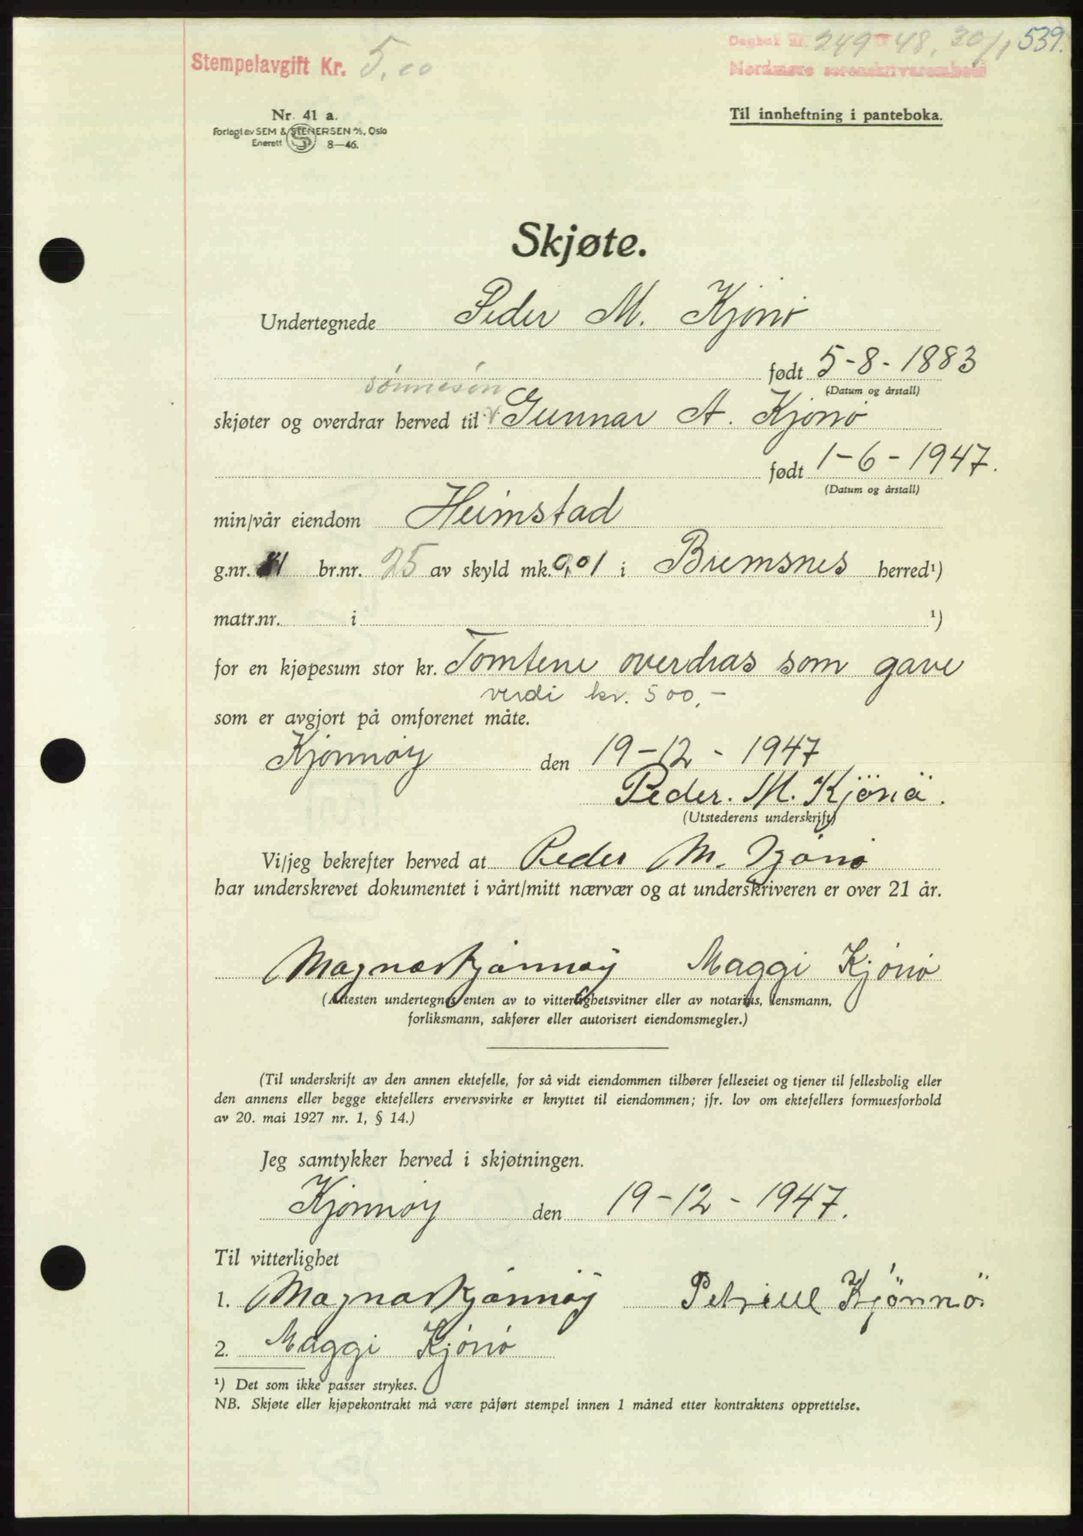 Stempelavgift Kr. 5,00
Dagbok nr. 249 48, 30/1 539.
Nordmøre sorenskriverembete
Nr. 41 a.
Forlagt av SEM & STENERSEN A/S, Oslo
Enerett 8—46.
Til innheftning i panteboka.
Skjøte.
Undertegnede Peder M. Kjönö
født 5-8-1883
(Datum og årstall)
sönnesön
skjøter og overdrar herved til Gunnar A. Kjönö
født 1-6-1947.
(Datum og årstall)
min/vår eiendom Heimstad
g.nr. 41 br.nr. 25 av skyld mk. 0,01 i Bremsnes herred¹)
matr.nr. i ¹)
for en kjøpesum stor kr. Tomtene overdras som gave
verdi kr. 500,-
som er avgjort på omforenet måte.
Kjönnöy den 19-12-1947
Peder. M. Kjönö.
(Utstederens underskrift)
Vi/jeg bekrefter herved at Peder M. Kjönö
har underskrevet dokumentet i vårt/mitt nærvær og at underskriveren er over 21 år.
Magnar Kjönnöy Maggi Kjönö
(Attesten undertegnes enten av to vitterlighetsvitner eller av notarius, lensmann,
forliksmann, sakfører eller autorisert eiendomsmegler.)
(Til underskrift av den annen ektefelle, for så vidt eiendommen tilhører felleseiet og tjener til fellesbolig eller
den annens eller begge ektefellers ervervsvirke er knyttet til eiendommen; jfr. lov om ektefellers formuesforhold
av 20. mai 1927 nr. 1, § 14.)
Jeg samtykker herved i skjøtningen.
Kjönnöy den 19-12-1947.
Til vitterlighet
1. Magnar Kjönnöy Kjönnö
2. Maggi Kjönö
¹) Det som ikke passer strykes.
NB. Skjøte eller kjøpekontrakt må være påført stempel innen 1 måned etter kontraktens opprettelse.